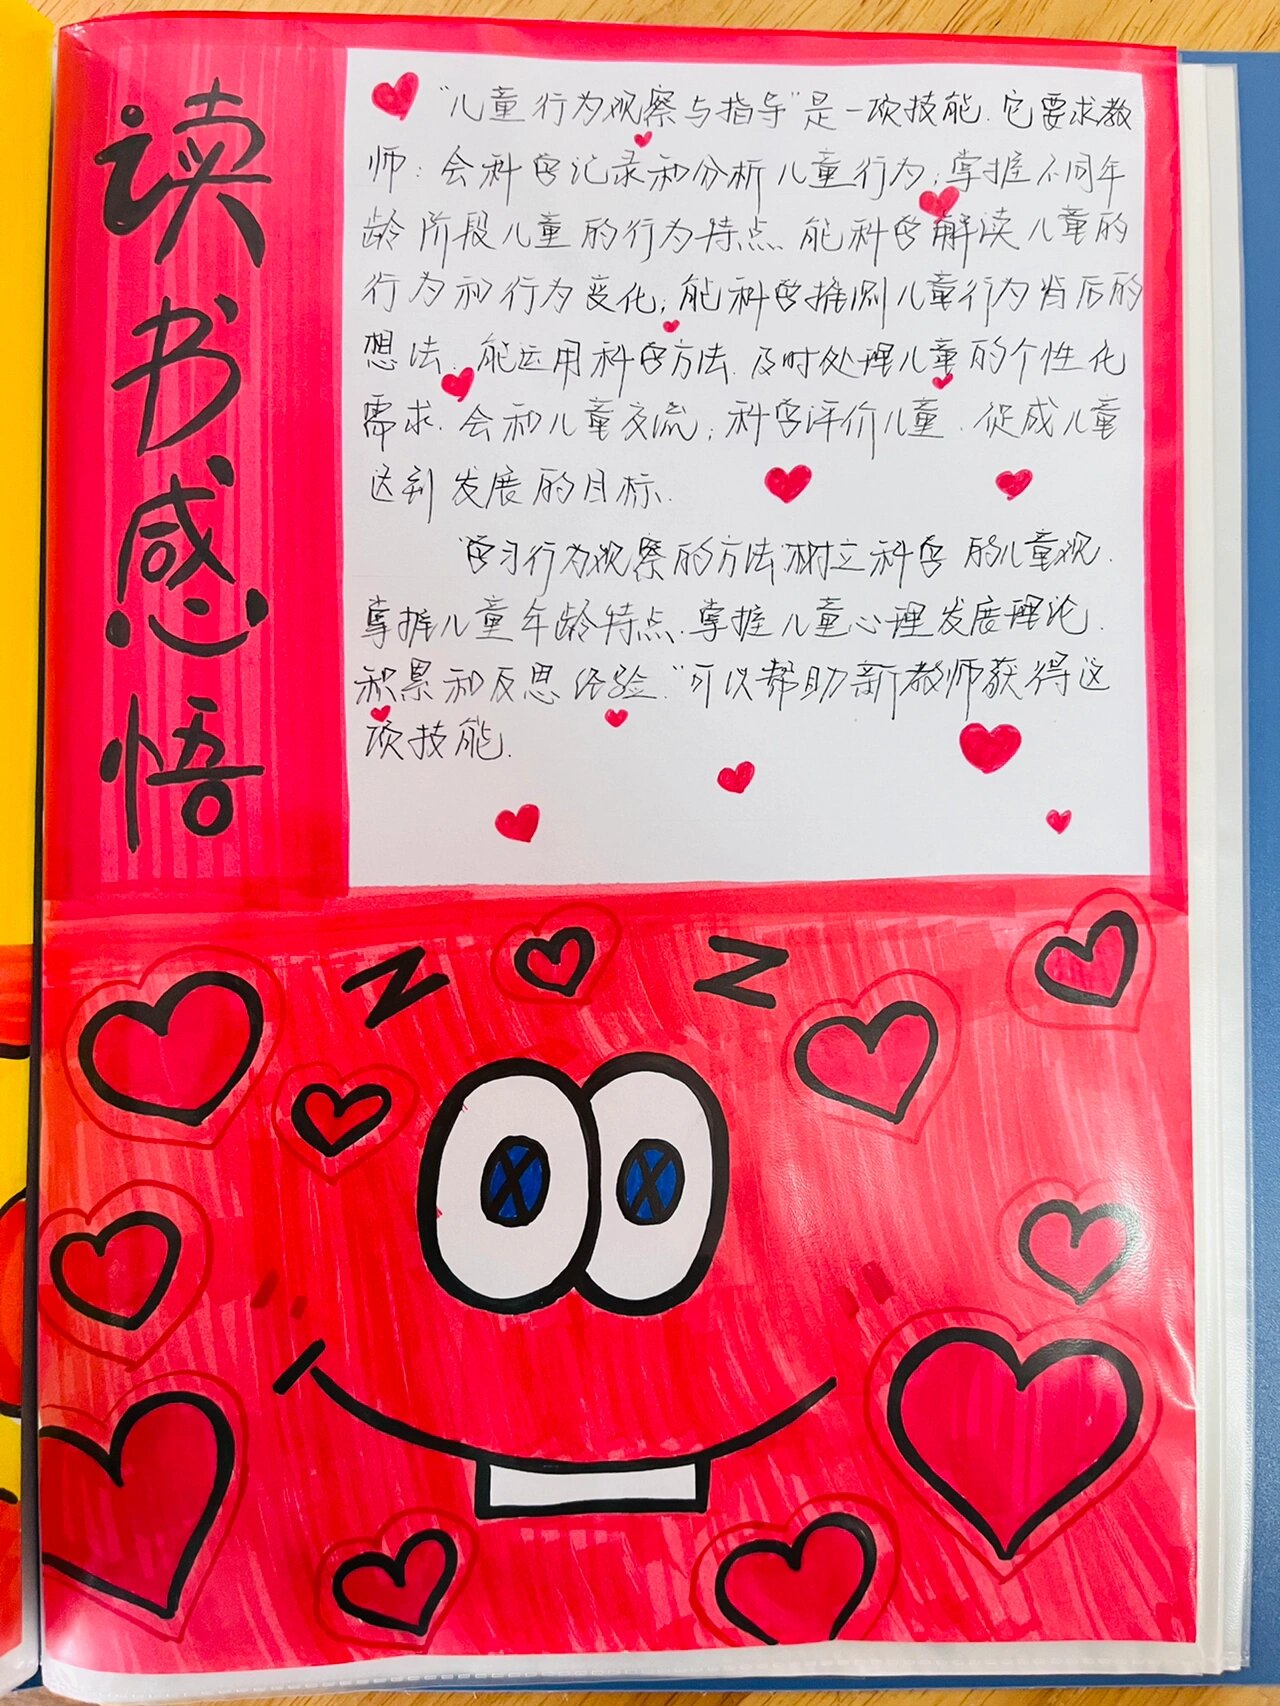 读书感悟
"儿童行为观察与指导"是一项技能.它要求教
师:会科学记录和分析儿童行为;掌握不同年
龄阶段儿童的行为特点.能科学解读儿童的
行为和行为变化;能科学推测儿童行为背后的
想法.能运用科学方法.及时处理儿童的个性化
需求.会和儿童交流;科学评价儿童.促成儿童
达到发展的目标.
"学习行为观察的方法"树立科学的儿童观.
掌握儿童年龄特点.掌握儿童心理发展理论.
积累和反思经验."可以帮助新教师获得这
项技能.